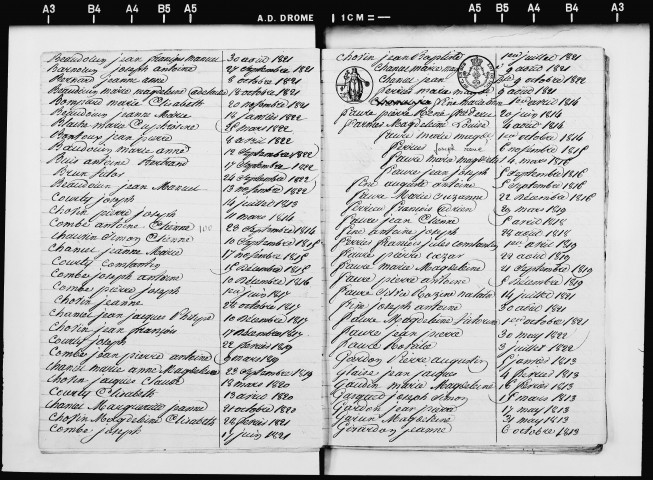 A3 B4 A4 B5 A5 A.D. DROME 1 CM A5 B5 A4 B4 A3
Beaudouin jean françois marcel 30 août 1821
Barnouin joseph antoine 27 Septembre 1821
Bernard jeanne anne 8 octobre 1821
Beaudouin marie magdeleine 18 octobre 1821
Bompard marie Elisabeth 20 novembre 1821
Beaudouin jeanne Marie 18 janvier 1822
Blache marie 28 mars 1822
jean 8 avril 1822
Baudouin marie anne 12 Septembre 1822
Buis antoine Bertrand 17 Septembre 1822
Brun 24 Septembre 1822
Beaudouin jean Marcel 13 novembre 1822
Courty joseph 14 juillet 1813
Chotin pierre joseph 11 mars 1814
Combe antoine Etienne 23 Septembre 1814
Chauvin Simon Etienne 10 Septembre 1815
Chanel jeanne Marie 17 novembre 1815
Courty Constantin 15 décembre 1815
Combe joseph antoine 10 décembre 1816
Combe pierre joseph 1er juin 1817
Chotin jeanne 26 octobre 1817
Chanel jean jacques 10 décembre 1817
Chotin jean françois 17 décembre 1817
Courty joseph 22 février 1819
Combe jean pierre antoine 9 mars 1819
Chanel marie anne Magdeleine 23 septembre 1819
Chotin jacques Claude 18 mars 1820
Courty Elisabeth 13 avril 1820
Chanel Marguerite jeanne 21 octobre 1820
Chotin Magdeleine Elisabeth 20 février 1821
Combe joseph 17 juin 1821
Chotin jean Baptiste 1er juillet 1821
Chanel marie août 1821
Chanel jean 9 octobre 1822
marie 9 août 1821
1er avril 1814
faure pierre René 20 juin 1814
Magdeleine Louise 4 août 1814
faure marie 1er octobre 1814
joseph 6 novembre 1815
faure marie magdeleine 14 mars 1816
faure jean joseph 5 Septembre 1816
Fine auguste antoine 5 Septembre 1816
faure Marie Suzanne 22 décembre 1816
françois 29 mars 1819
faure jean Etienne 5 avril 1818
Fine antoine joseph 28 août 1818
françois jules Constantin 1er avril 1819
faure pierre 29 août 1819
faure marie Magdeleine 21 Septembre 1819
faure pierre antoine 5 décembre 1819
faure 14 juillet 1821
Fine joseph antoine 30 août 1821
Faure Magdeleine Victorine 1er octobre 1821
faure jean pierre 30 may 1822
faure 3 juillet 1822
Gardon Pierre augustin 5 janvier 1813
Glaise jean jacques 4 février 1813
Gaudin marie Magdeleine 6 février 1813
joseph Simon 18 mars 1813
Gardon jean pierre 17 may 1813
Magdeleine 31 may 1813
Girardon jeanne 6 octobre 1813